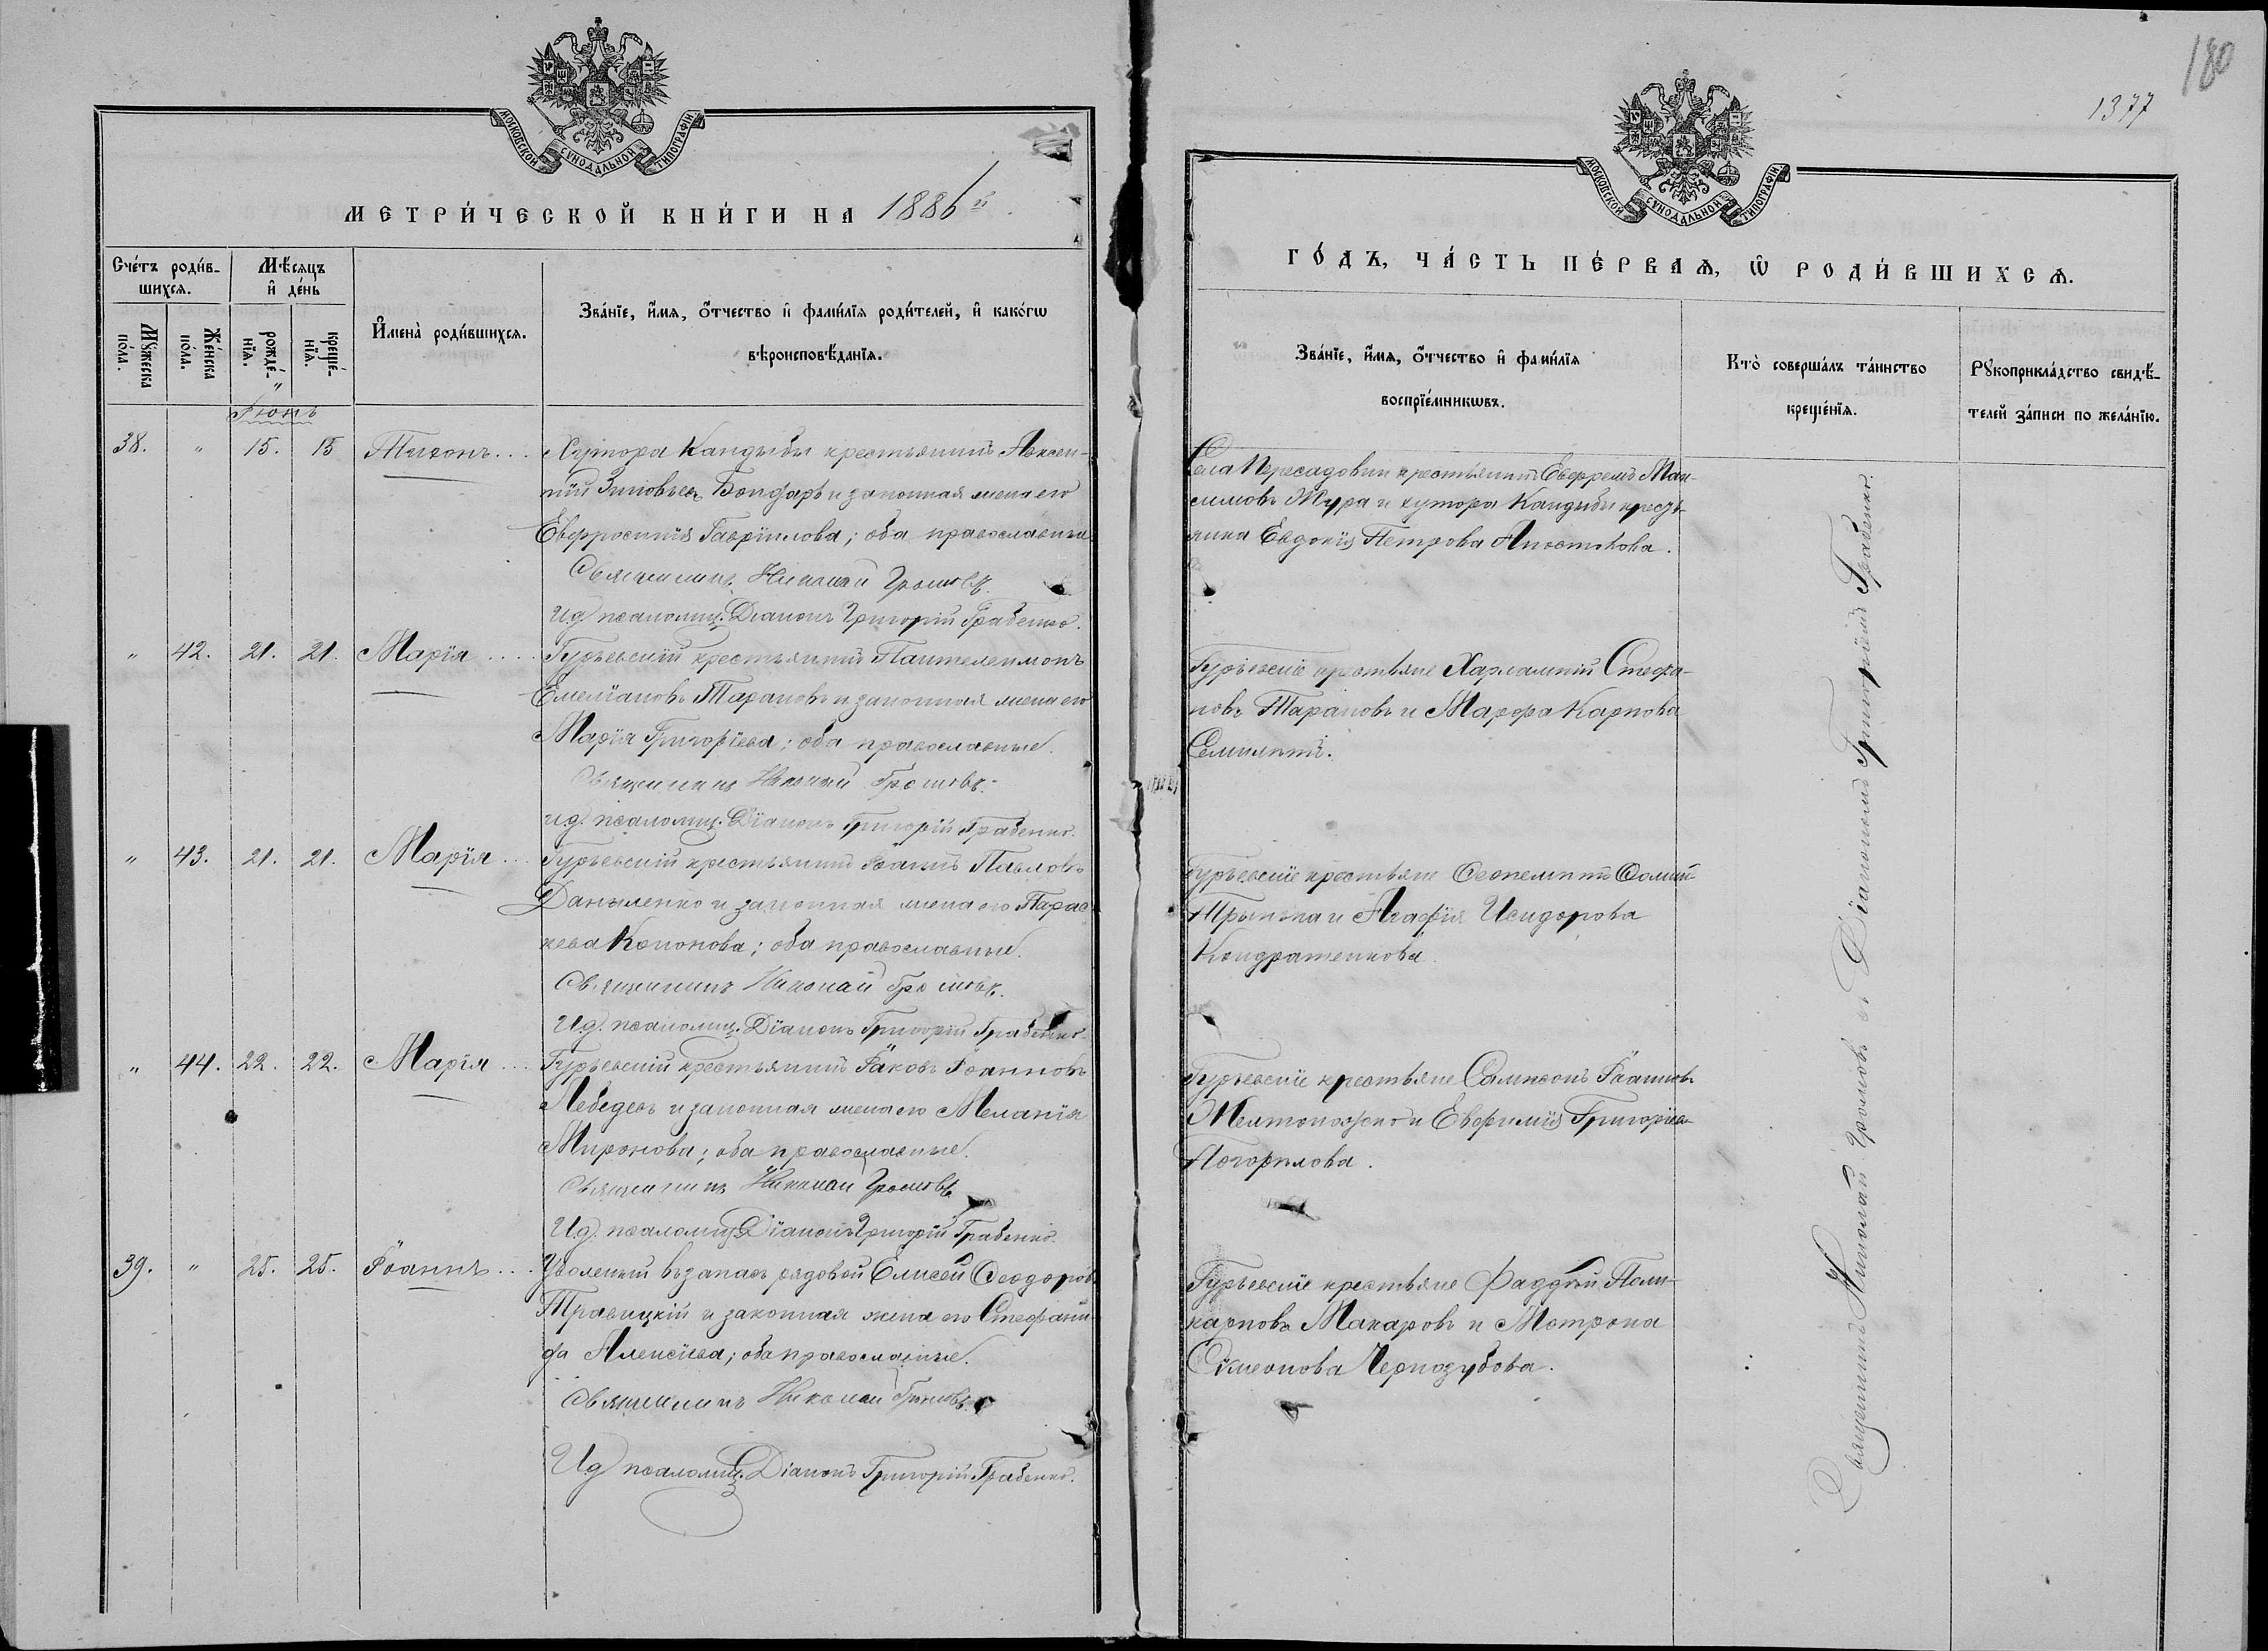 180
1377
МОСКОВСКОЙ СУНОДАЛЬНОЙ ТИПОГРАФІИ
МЕТРИ́ЧЕСКОЙ КНИ́ГИ НА 1886й
Сче́тъ роди́в-
шихсѧ.
Мѣ́сѧцъ
и҆ де́нь
Мꙋ́жеска
по́ла.
Же́нска
по́ла.
рожде́-
нїѧ.
креще́-
нїѧ.
И҆мена̀ роди́вшихсѧ.
Зва́нїе, и҆́мѧ, ѻ҆́тчество и҆ фами́лїѧ роди́телей, и҆ како́гѡ
вѣроисповѣ́данїѧ.
Іюнь
38. " 15. 15 Тихонъ...
Хутора Кандыбы крестьянинъ Авксен-
тій Зиновьевъ Бондарь и законная жена его
Евфросинія Гавріилова; оба православные
Священникъ Николай Громовъ.
И.д. псаломщ. Діаконъ Григорій Грабенко.
" 42. 21. 21. Марія ....
Гурьевскій крестьянинъ Пантелеимонъ
Емеліановъ Тарановъ и законная жена его
Марія Григоріева; оба православные.
Священникъ Николай Громовъ.
и.д. псаломщ. Діаконъ Григорій Грабенко.
" 43. 21. 21. Марія ...
Гурьевскій крестьянинъ Іоаннъ Павловъ
Даныленко и законная жена его Парас-
кева Кононова; оба православные.
Священникъ Николай Громовъ.
И.д. псаломщ. Діаконъ Григорій Грабенко.
" 44. 22. 22. Марія ...
Гурьевскій крестьянинъ Іаковъ Іоанновъ
Лебедевъ и законная жена его Меланія
Миронова; оба православные.
Священникъ Николай Громовъ
И.д. псаломщ. Діаконъ Григорій Грабенко.
39. " 25. 25. Іоаннъ...
Уволенный въ запасъ рядовой Елисей Ѳеодоровъ
Травицкій и законная жена его Стефани-
да Алексіева; оба православные.
Священникъ Николай Громовъ.
И.д псаломщ. Діаконъ Григорій Грабенко.
МОСКОВСКОЙ СУНОДАЛЬНОЙ ТИПОГРАФІИ
ГО́ДЪ, ЧА́СТЬ ПЕ́РВАѦ, Ѡ҆ РОДИ́ВШИХСѦ.
Зва́нїе, и҆́мѧ, ѻ҆́тчество и҆ фами́лїѧ
воспрїе́мникѡвъ.
Кто̀ соверша́лъ та́инство
креще́нїѧ.
Рꙋкоприкла́дство свидѣ́-
телей за́писи по жела́нїю.
Села Пересадовки крестьянинъ Евфремъ Мак-
симовъ Жура и хутора Кандыбы кресть-
янка Евдокія Петрова
Гурьевскіе крестьяне Харлампій Стефа-
новъ Тарановъ и Марфа Карпова
Гурьевскіе крестьяне
и Агафія Исидорова
Кондратенкова
Гурьевскіе крестьяне Сампсонъ Іоанновъ
Желтоножко и Евфимія Григоріева
Погорилова.
Гурьевскіе крестьяне Фаддей Поли-
карповъ Макаровъ и Матрона
Симеонова Чернозубова.
Священникъ Николай Громовъ съ Діакономъ Григоріемъ Грабенко.